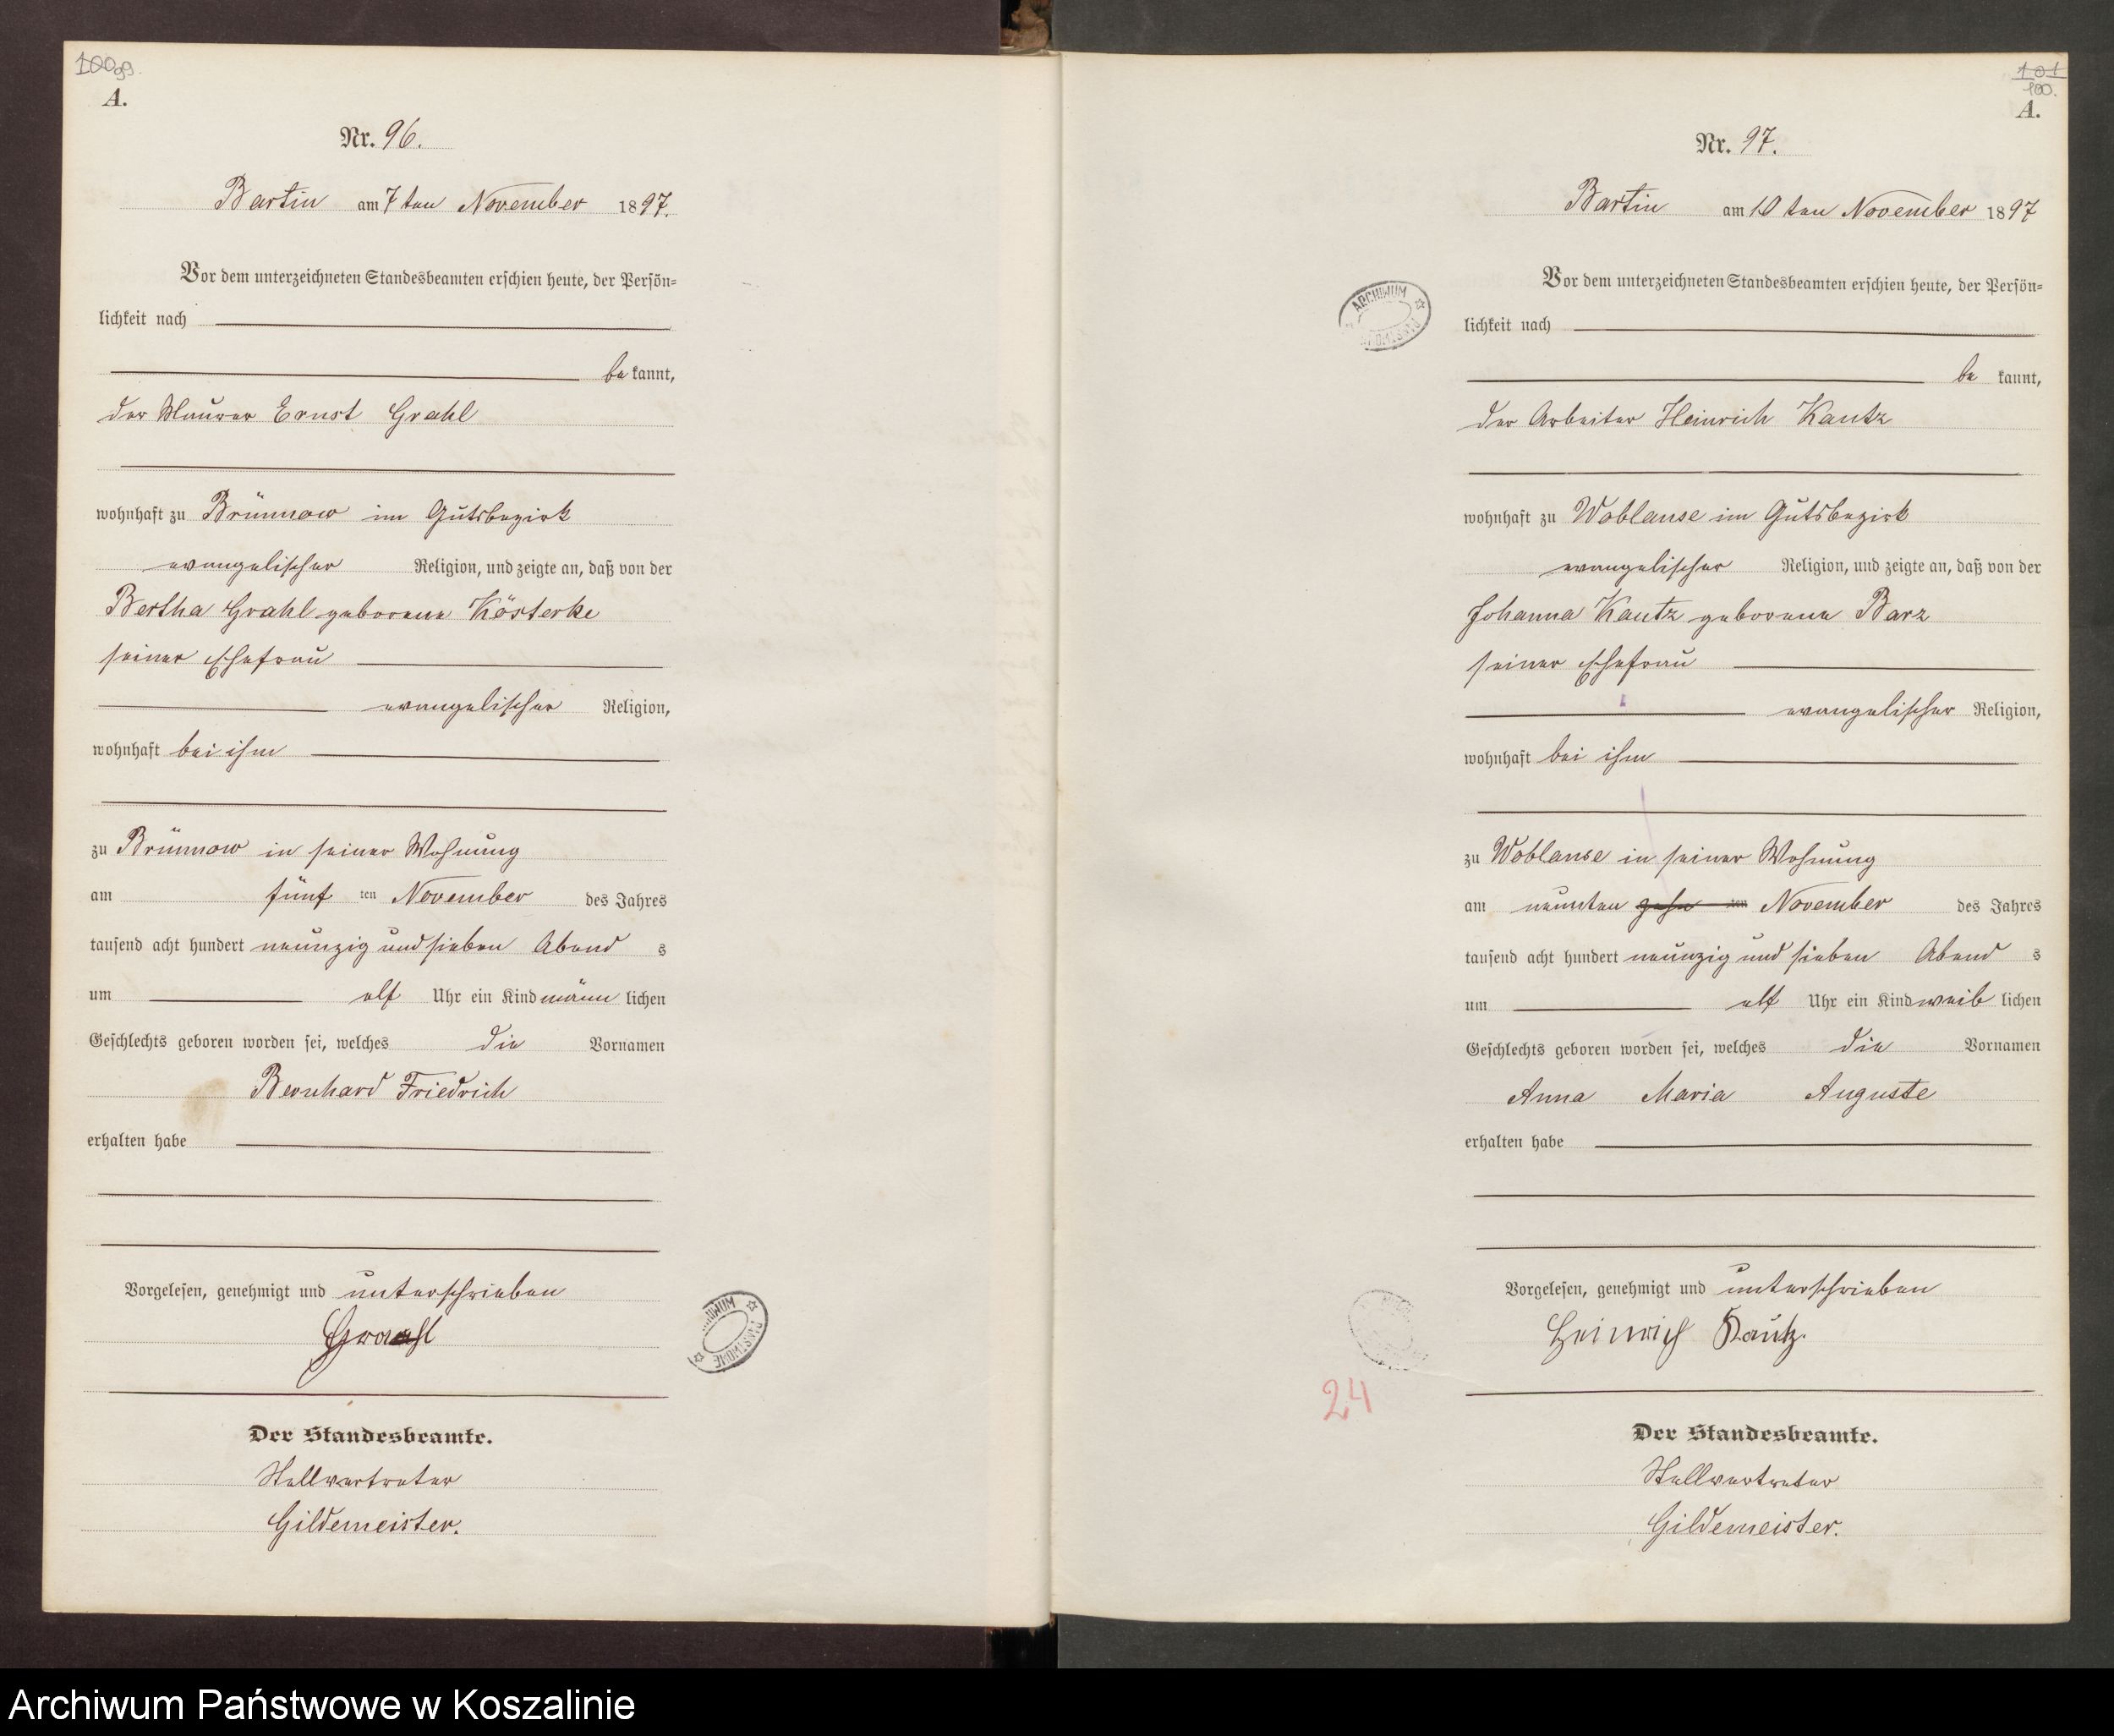 100 99.
A.
Nr. 96.
Bartin am 7 ten November 1897.
Vor dem unterzeichneten Standesbeamten erschien heute, der Persön=
lichkeit nach
be kannt,
der Maurer Ernst Grahl
wohnhaft zu Brünnow im Gutsbezirk
evangelischer Religion, und zeigte an, daß von der
Bertha Grahl geborene Kösterke
seiner Ehefrau
evangelischer Religion,
wohnhaft bei ihm
zu Brünnow in seiner Wohnung
am fünf ten November des Jahres
tausend acht hundert neunzig und sieben Abend s
um elf Uhr ein Kind männ lichen
Geschlechts geboren worden sei, welches die Vornamen
Bernhard Friedrich
erhalten habe
Vorgelesen, genehmigt und unterschrieben
Grahl
Der Standesbeamte.
Stellvertreter
Gildemeister.
ARCHIWUM PAŃSTWOWE
101
100.
A.
Nr. 97.
Bartin am 10 ten November 1897
Vor dem unterzeichneten Standesbeamten erschien heute, der Persön=
lichkeit nach
be kannt,
der Arbeiter Heinrich Kautz
wohnhaft zu Woblanse im Gutsbezirk
evangelischer Religion, und zeigte an, daß von der
Johanna Kautz geborene Barz
seiner Ehefrau
evangelischer Religion,
wohnhaft bei ihm
zu Woblanse in seiner Wohnung
am neunten zehn ten November des Jahres
tausend acht hundert neunzig und sieben Abend s
um elf Uhr ein Kind weib lichen
Geschlechts geboren worden sei, welches die Vornamen
Anna Maria Auguste
erhalten habe
Vorgelesen, genehmigt und unterschrieben
Heinrich Kautz.
Der Standesbeamte.
Stellvertreter
Gildemeister.
ARCHIWUM PAŃSTWOWE
24
Archiwum Państwowe w Koszalinie